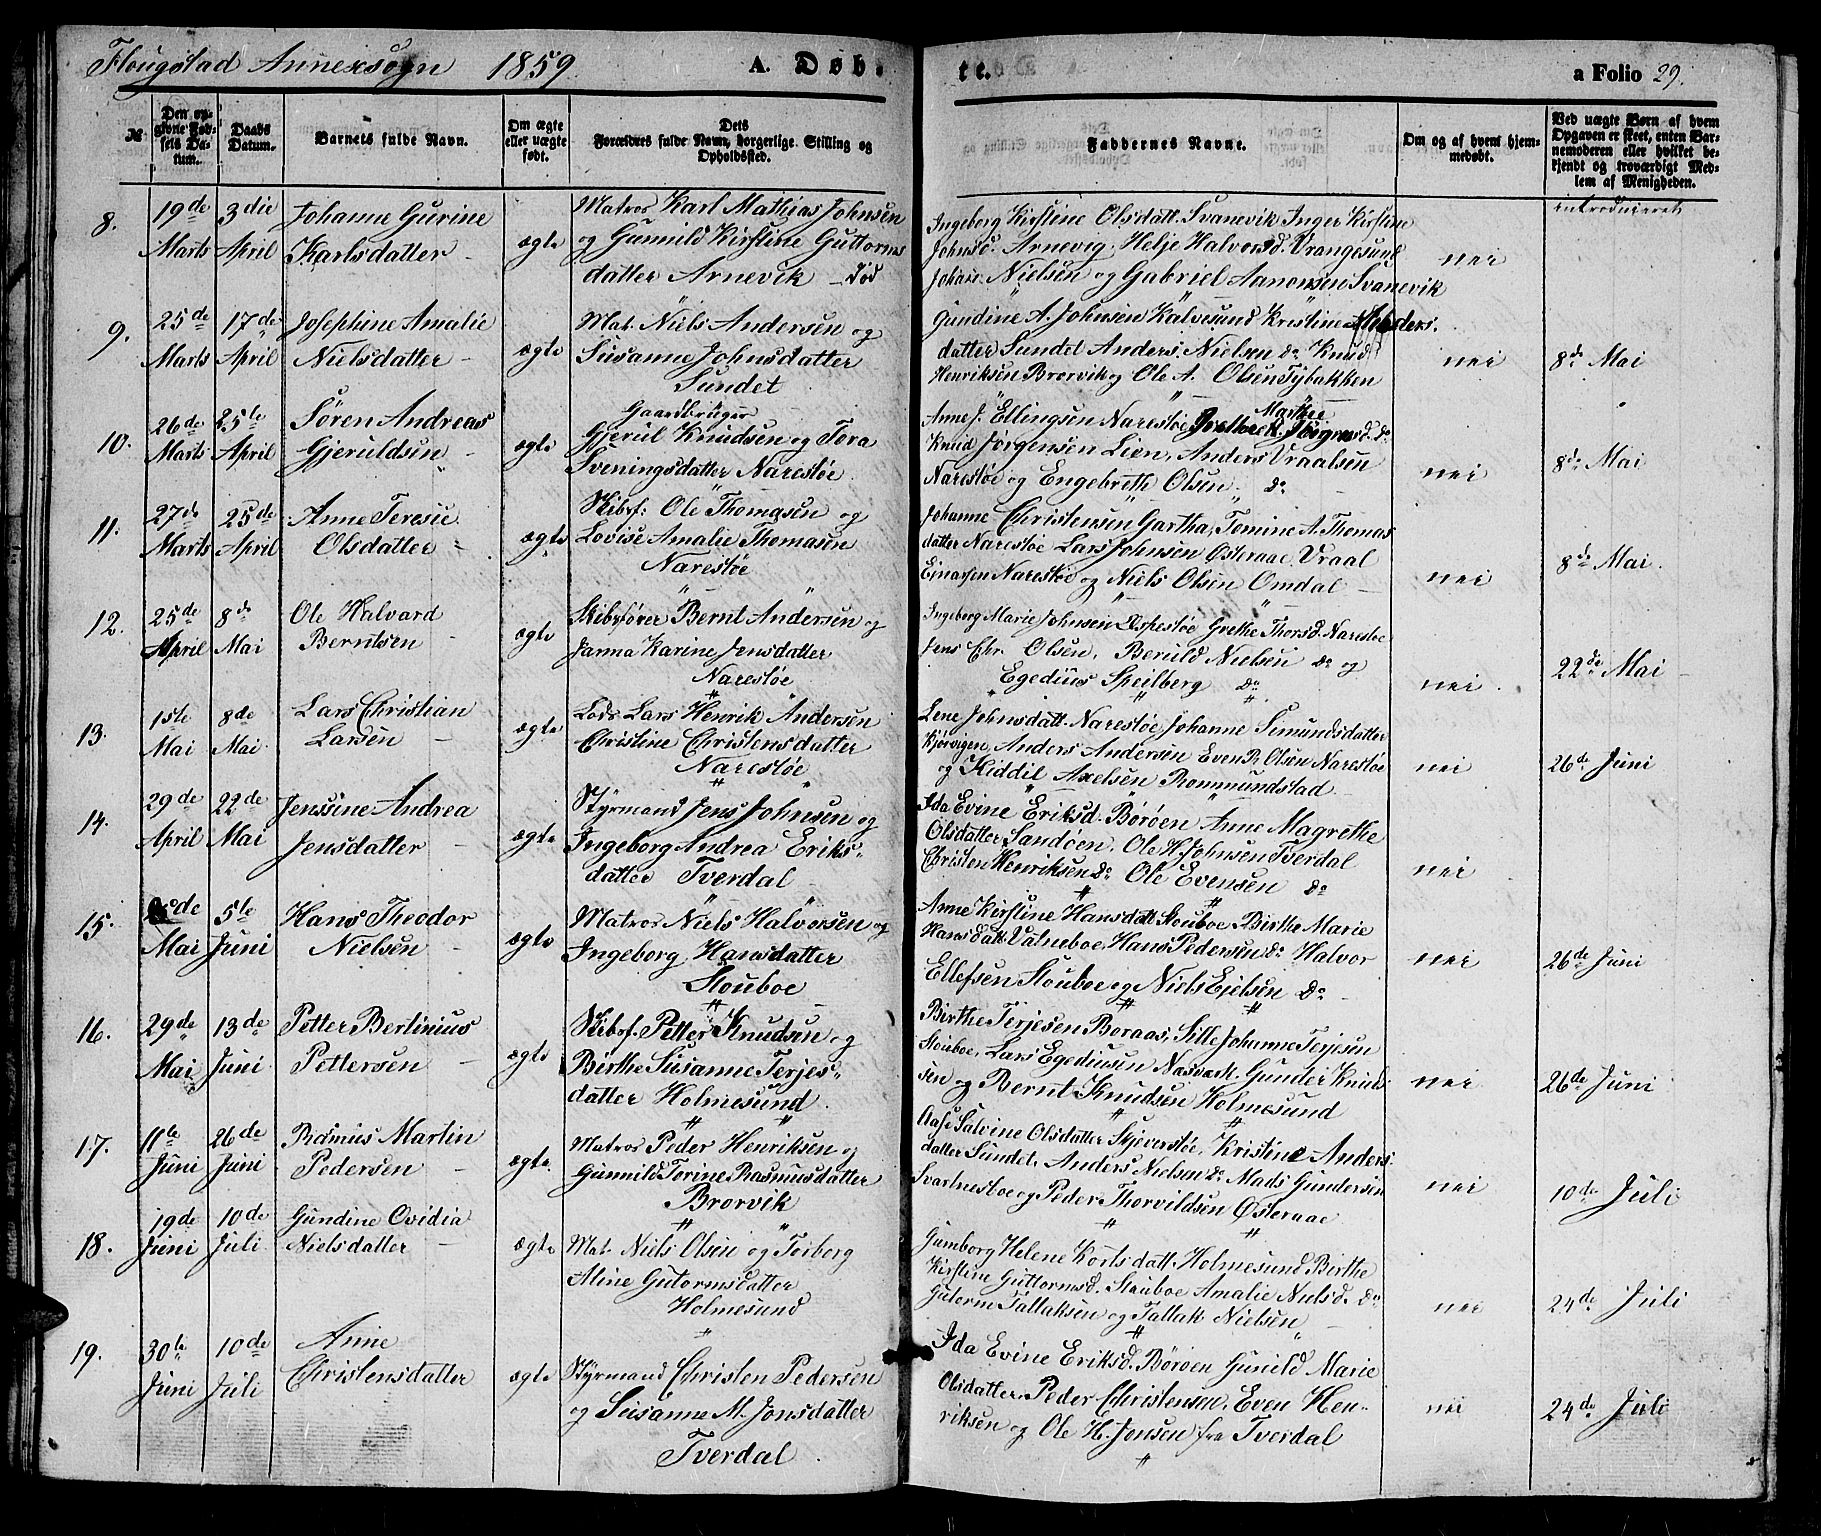 Flougstad Annexsogn 1859 A. Døbte. a Folio 29.
№
Den opgivne Fødsels Datum.
Daabs Datum.
Barnets fulde Navn.
Om ægte eller uægte født.
Dets Forældres fulde Navn, borgerlige Stilling og Opholdssted.
Faddernes Navne.
Om og af hvem hjemmedøbt.
Ved uægte Børn af hvem Opgaven er skeet, enten Barnemoderen eller hvilket bekjendt og troværdigt Medlem af Menigheden.
introduceret
8. 19de Marts 3die April
Johanne Gurine
Karlsdatter
ægte
Matros Karl Mathias Johnsen
og Gunnild Kirstine Guttorms
datter Arnevik – død
Ingeborg Kirstine Olsdatt. Svanevik Inger Kirstine
Johnsd. Arnevig, Helje Halvorsd. Vrangesund
Johan Nielsen og Gabriel Aanonsen Svanevik
nei
9. 25de Marts 17de April
Josephine Amalie
Nielsdatter
ægte
Mat. Niels Andersen og
Susanne Johnsdatter
Sundet
Gundine A. Johnsen Kalvesund Kristine Anders.
datter Sundet Anders Nielsen do Knud
Henriksen Brorvik og Ole A. Olsen Tybakken
nei
8de Mai
10. 26de Marts 25te April
Søren Andreas
Gjeruldsen
ægte
Gaardbruger
Gjerul Knudsen og Tora
Sveningsdatter Narestøe
Anne J. Ellingsen Narestøe Marthe Jørgensd. do
Knud Jørgensen Lien, Anders Vraalsen
Narestøe og Engebreth Olsen do
nei
8de Mai
11. 27de Marts 25de April
Anne Teresie
Olsdatter
ægte
Skibrf: Ole Thomasen og
Lovise Amalie Thomasen
Narestøe
Johanne Christensen Gartha, Tomine A. Thomas
datter Narestøe Lars Johnsen Østeraae, Vraal
Ejnarsen Narestøe og Niels Olsen Omdal
nei
8de Mai
12. 25de April 8de Mai
Ole Halvard
Berntsen
ægte
Skibrfører Bernt Andersen og
Janna Karine Jensdatter
Narestøe
Ingeborg Marie Johnsen Espestøe Grethe Thorsd. Narestøe
Jens Chr. Olsen, Beruld Nielsen do og
Egedius Speilberg do
nei
22de Mai
13. 1ste Mai 8de Mai
Lars Christian
Larsen
ægte
Lods Lars Henrik Andersen
Christine Christensdatter
Narestøe
Lene Johnsdatt. Narestøe, Johanne Simundsdatter
Kjørvigen, Anders Andersen Even R. Olsen Narestøe
og Kiddil Axelsen Brommundstad
nei
26de Juni
14. 29de April 22de Mai
Jenssine Andrea
Jensdatter
ægte
Styrmand Jens Johnsen og
Ingeborg Andrea Eriks-
datter Tverdal
Ida Evine Eriksd. Børøen Anne Magrethe
Olsdatter Sandøen, Ole H. Johnsen Tverdal
Christen Henriksen do Ole Evensen do
nei
15. Mai 5te Juni
Hans Theodor
Nielsen
ægte
Matros Niels Halvorsen og
Ingeborg Hansdatter
Stouboe
Anne Kirstine Hansdatt. Stouboe, Birthe Marie
Hansdatt. Valneboe, Hans Pedersen do Halvor
Ellefsen Stouboe og Niels Eielsen do
nei
26de Juni
16. 29de Mai 13de Juni
Petter Bertinius
Pettersen
ægte
Skibrf. Petter Knudsen og
Birthe Susanne Terjes-
datter Holmesund
Birthe Terjesen Boraas, Sille Johanne Terjesen
Stouboe, Lars Egediusen Nasvark. Gunder Knud-
sen og Bernt Knudsen Holmesund
nei
26de Juni
17. 11te Juni 26de Juni
Rasmus Martin
Pedersen
ægte
Matros Peder Henriksen og
Gunnild Torine Rasmusdatter
Brorvik
Aase Salvine Olsdatter Skjeverstøe, Kristine Anders-
datter Sundet, Anders Nielsen do Mads Gundersen
Svartnesboe og Peder Thorvildsen Østeraae
nei
10de Juli
18. 19de Juni 10de Juli
Gundine Ovidia
Nielsdatter
ægte
Mat. Niels Olsen og Torborg
Aline Gutormsdatter
Holmesund
Gumborg Helene Kortsdatt. Holmesund, Birthe
Kirstine Guttormsd. Stouboe Amalie Nielsd. do
Gutorm Tallaksen og Tallak Nielsen
nei
24de Juli
19. 30te Juni 10de Juli
Anne
Christensdatter
ægte
Styrmand Christen Pedersen
og Susanne M. Jonsdatter
Tverdal
Ida Evine Eriksd. Børøen Gunild Marie
Olsdatter, Peder Christensen, Even Hen-
riksen og Ole H. Jonsen fra Tverdal
nei
24de Juli